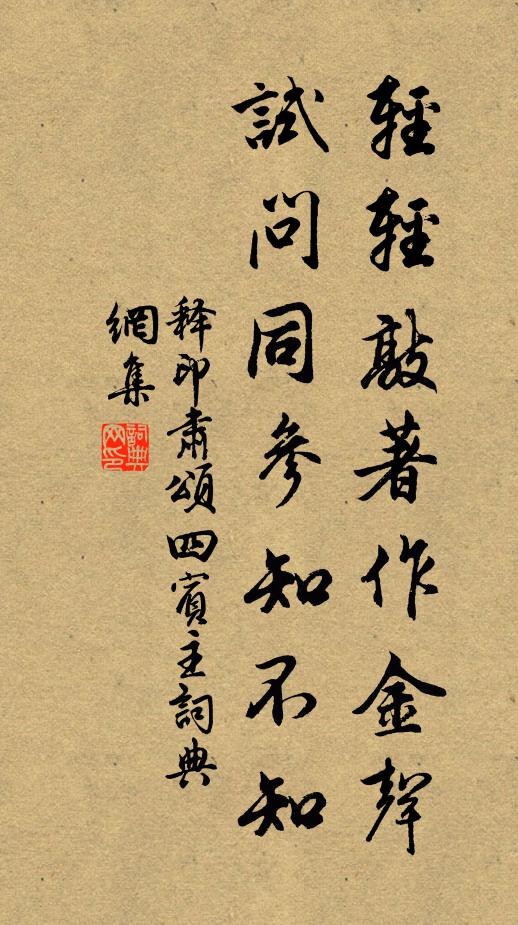 輕輕敲著作金聲
試問同參知不知
释印肅頌四賓主詞典
網集
詞典
网印